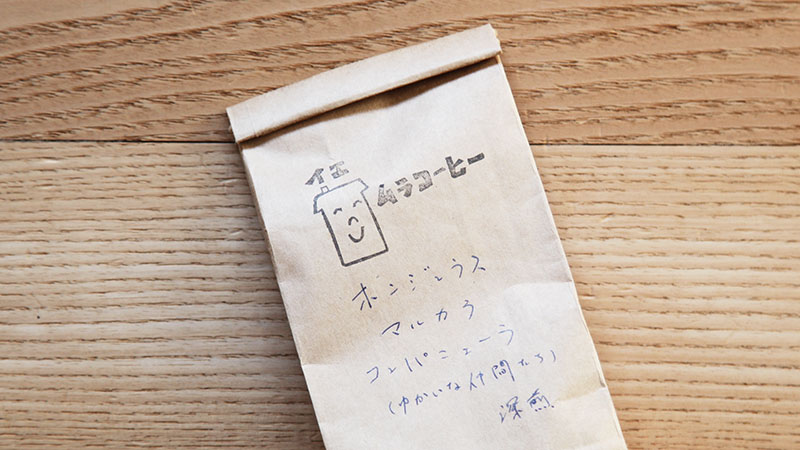 イエ
ムラコーヒー
ホンジュラス
マルカラ
コンパニューラ
(ゆかいな仲間たち)
深煎